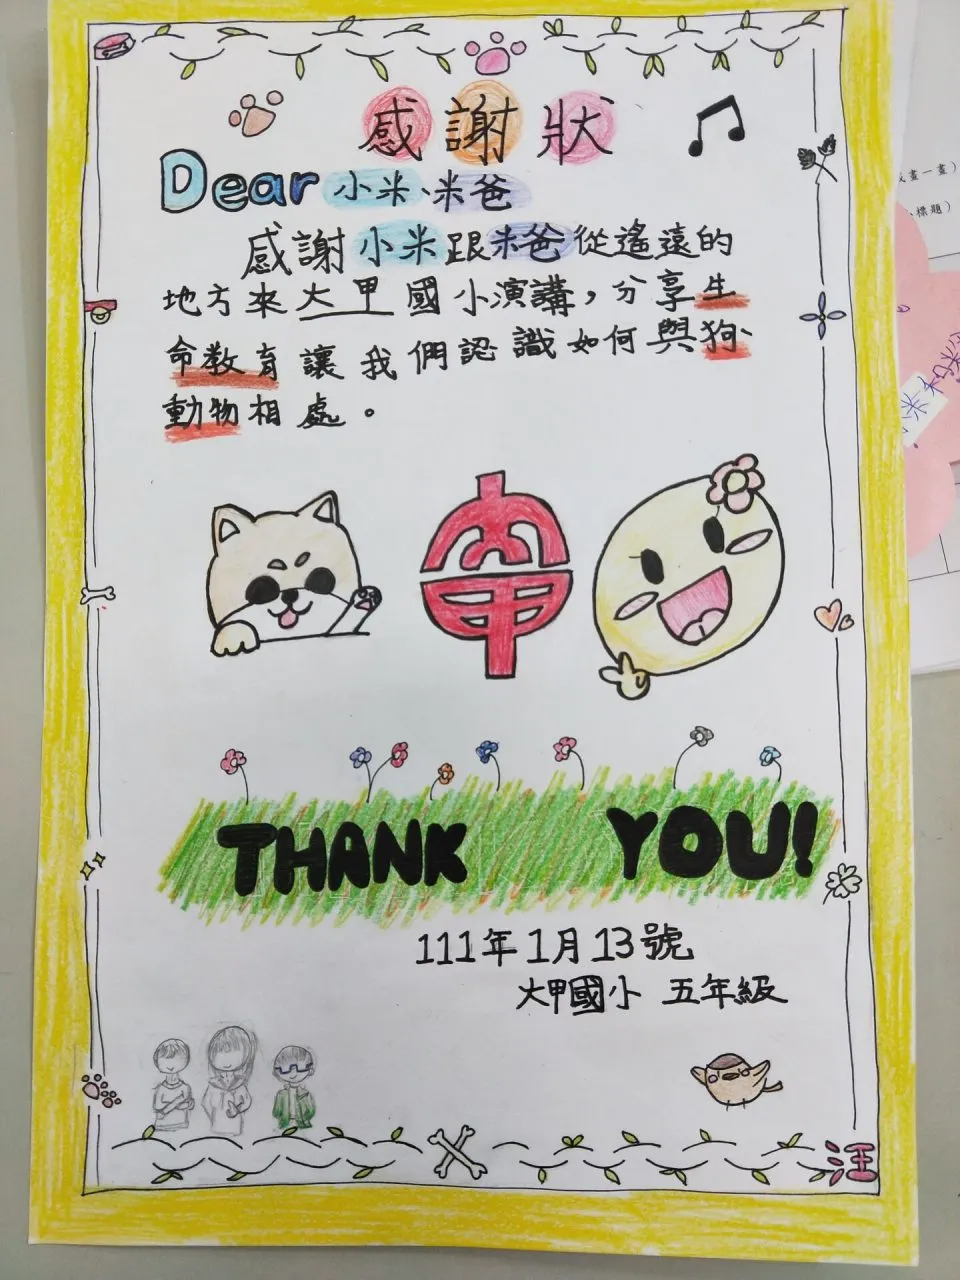 感謝狀
Dear 小米、米爸
感謝小米跟米爸從遙遠的
地方來大甲國小演講，分享生
命教育讓我們認識如何與狗
動物相處。
THANK YOU!
111年1月13號
大甲國小 五年級
汪
或畫一畫）
標題）